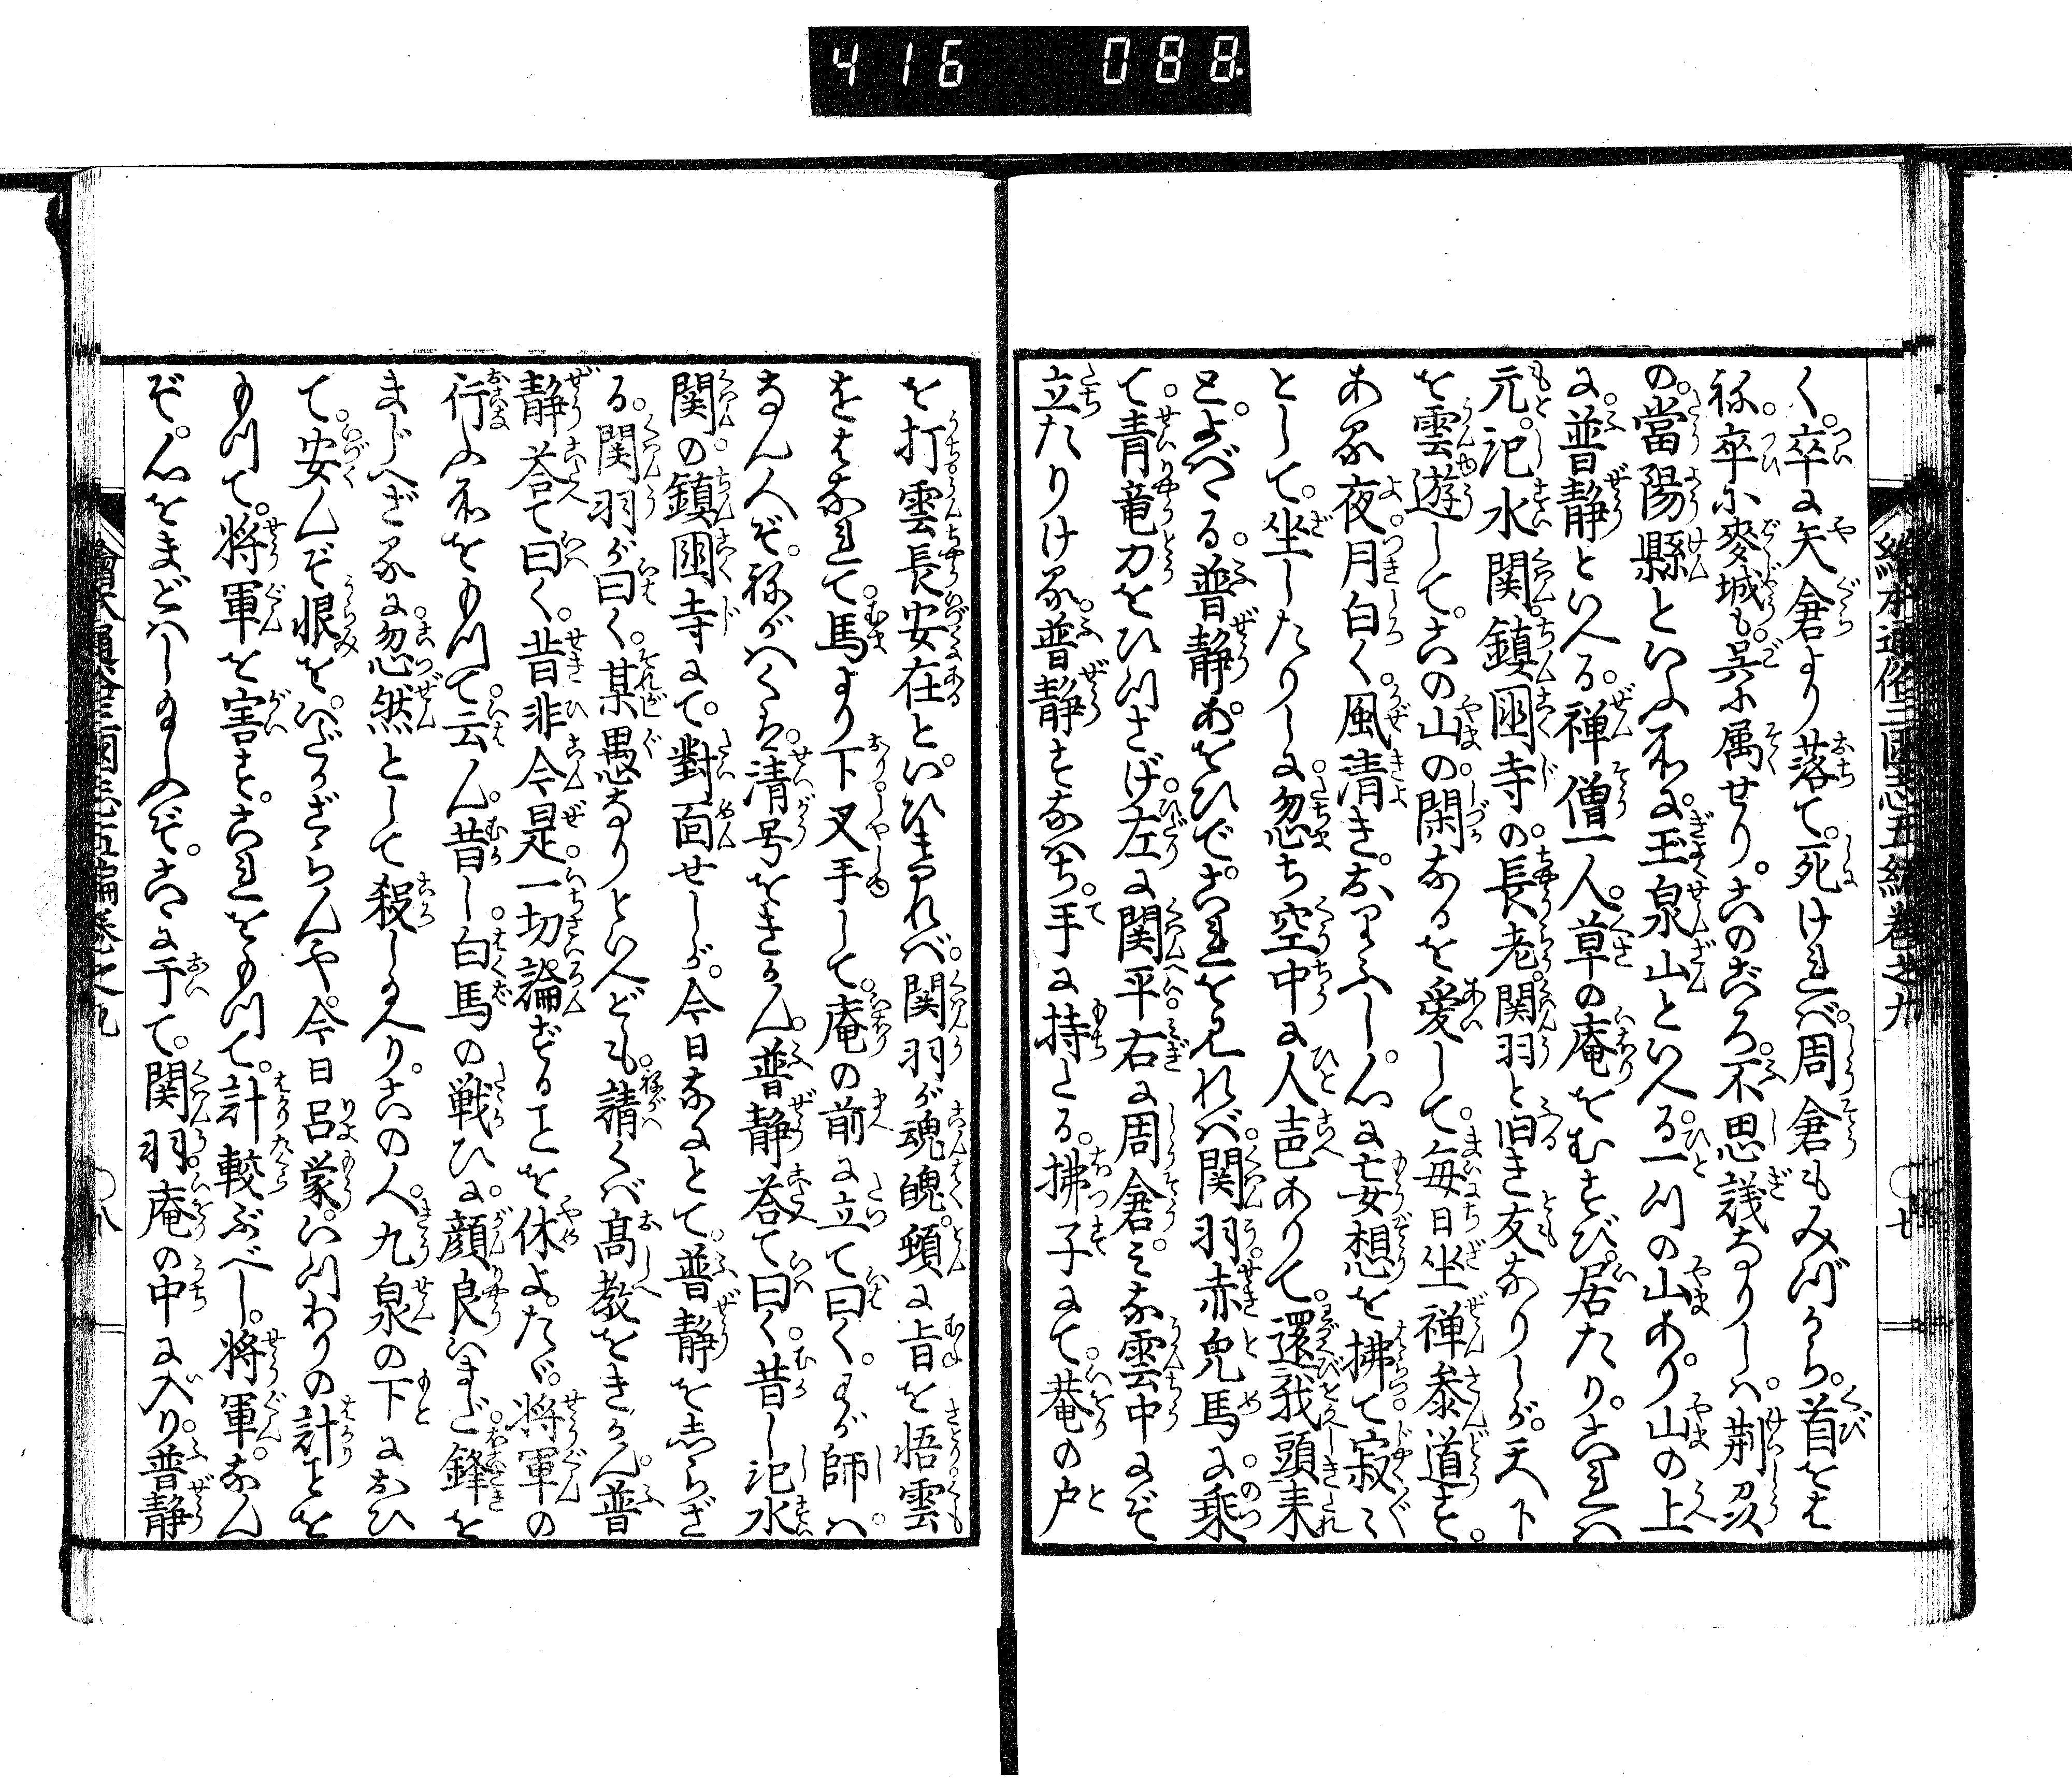 416 088
繪本通俗三國志五編卷之九 ○七
く。卒に矢倉より落て。死けれバ。周倉もみづから。首をは
ね。卒に麥城も。呉に属せり。このごろ。不思議なりしハ。荊州
の。當陽縣といふ所に。玉泉山といへる。一つの山あり。山の上
に。普静といへる。禅僧一人。草の庵をむすび。居たり。これハ
元。汜水関。鎮國寺の。長老。関羽と旧き友なりしが。天下
を雲遊して。この山の。閑なるを愛して。毎日坐禅參道す。
ある夜。月白く。風清き。おりふし。心に妄想を拂て。寂〻
として。坐したりしに。忽ち空中に人声ありて。還我頭来
と。よバゝる。普静。あをひで。これを見れバ。関羽。赤兔馬に。乗
て。青竜刀をひつさげ。左に関平。右に周倉。みな雲中にぞ
立たりける。普静。すなハち。手に持たる。拂子にて。菴の戸
を打。雲長安在と。いひけれバ。関羽が魂魄。頓に旨を悟。雲
をはなれて。馬より下。叉手して。庵の前に立て曰く。わが師ハ。
なん人ぞ。ねがハくは。清号をきかん。普静荅て曰く。昔し汜水
関の。鎮國寺にて。對面せしが。今日なにとて。普静をしらざ
る。関羽が曰く。某愚なりといへども。請くバ高教をきかん。普
静荅て曰く。昔非今是。一切論ずることを休よ。たゞ。将軍の
行ふ所をもつて。云ん。昔し。白馬の戦ひに。顔良いまだ。鋒を
まじへざるに。忽然として殺し給へり。この人。九泉の下におひ
て。安んぞ恨を。いだかざらんや。今日呂蒙。いつわりの計ことを
もつて。将軍を害す。これをもつて。計較ぶべし。将軍。なん
ぞ。心をまどハし給ふぞ。こゝに于て。関羽。庵の中に入り。普静
繪本通俗三國志五編卷之九 ○八